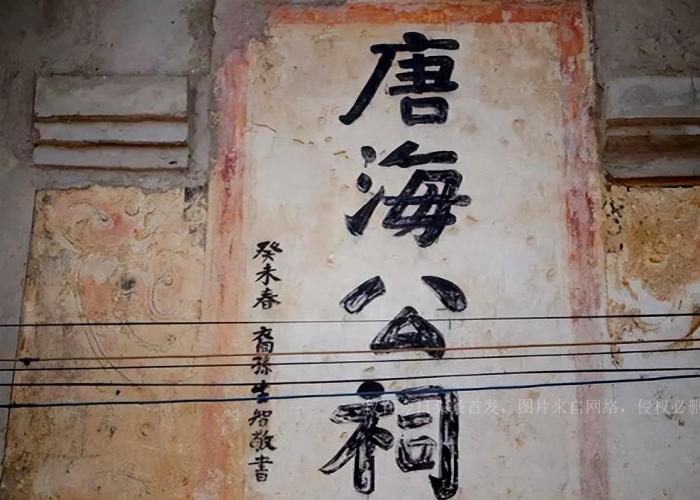 唐海公祠
癸未春 裔孫生智敬書
首发，图片来自网络，侵权必删